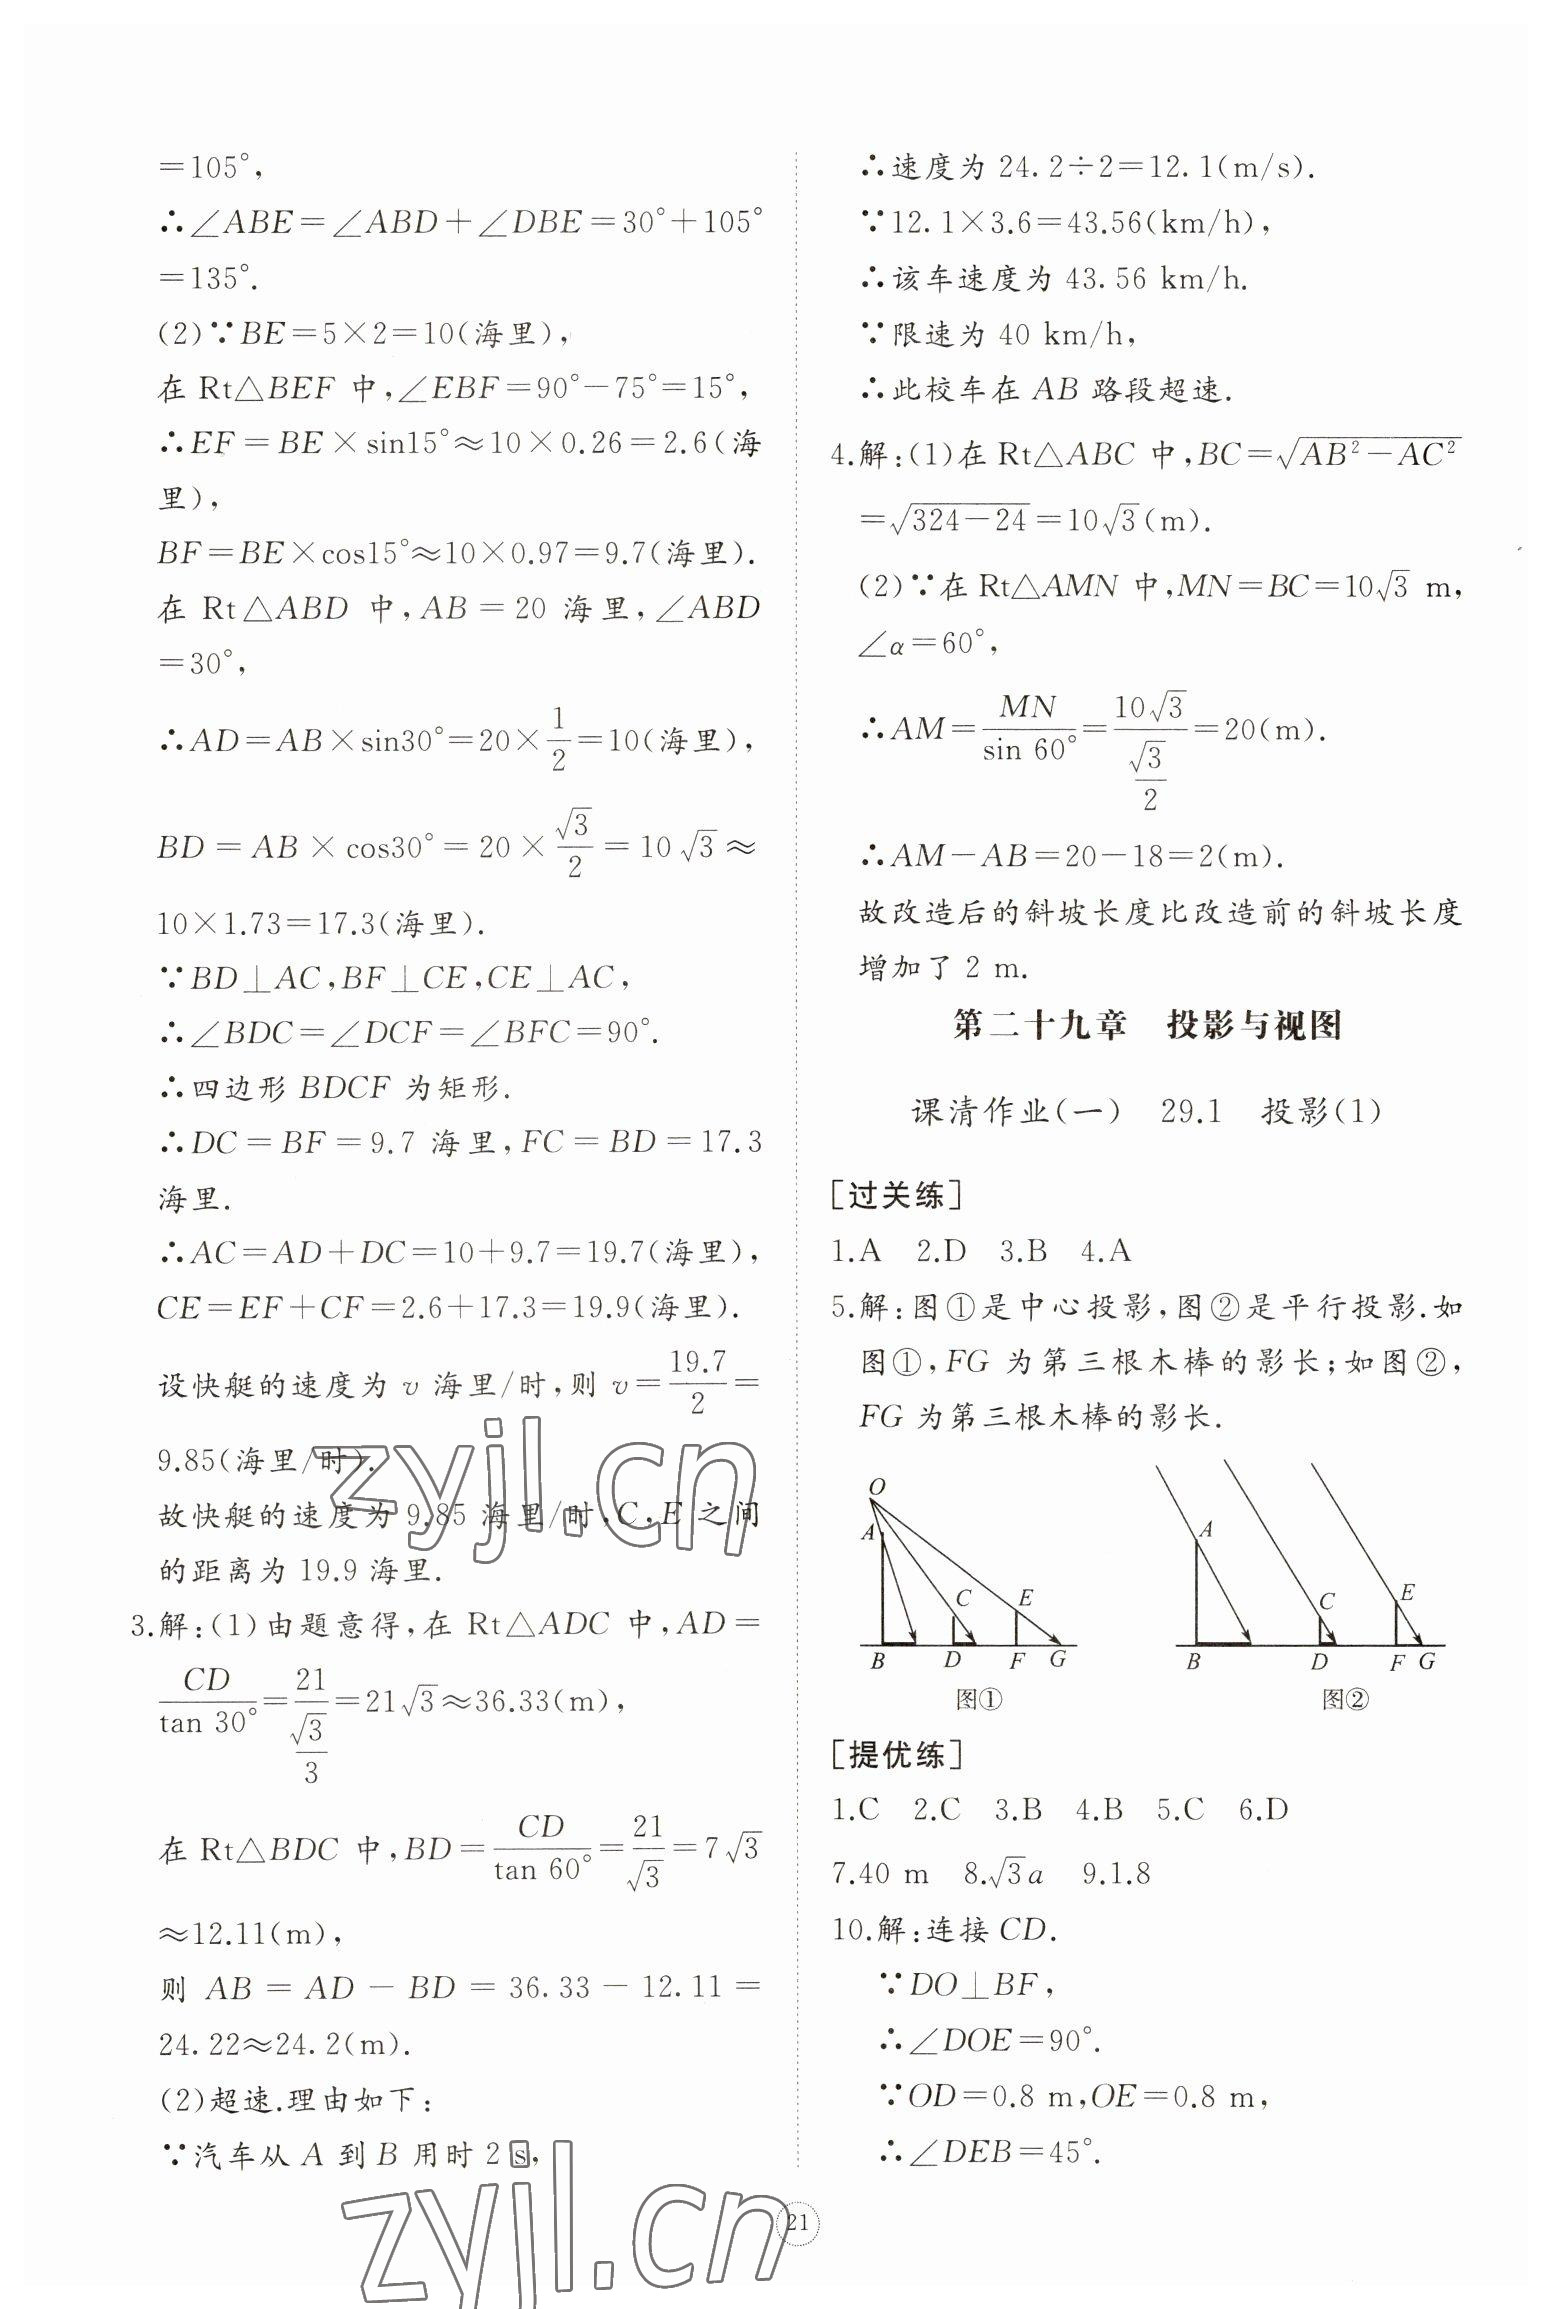 =105°,
∴∠ABE=∠ABD+∠DBE=30°+105°
=135°.
(2)∵BE=5×2=10(海里),
在 Rt△BEF 中,∠EBF=90°-75°=15°,
∴EF=BE×sin15°≈10×0.26=2.6(海
里),
BF=BE×cos15°≈10×0.97=9.7(海里).
在 Rt△ABD 中,AB=20 海里,∠ABD
=30°,
∴AD=AB×sin30°=20×1/2=10(海里),
BD=AB×cos30°=20×√3/2=10√3≈
10×1.73=17.3(海里).
∵BD⊥AC,BF⊥CE,CE⊥AC,
∴∠BDC=∠DCF=∠BFC=90°.
∴四边形 BDCF 为矩形.
∴DC=BF=9.7 海里,FC=BD=17.3
海里.
∴AC=AD+DC=10+9.7=19.7(海里),
CE=EF+CF=2.6+17.3=19.9(海里).
设快艇的速度为 v 海里/时,则 v=19.7/2=
9.85(海里/时).
故快艇的速度为 9.85 海里/时,C,E 之间
的距离为 19.9 海里.
3.解:(1)由题意得,在 Rt△ADC 中,AD=
CD/tan 30°=21/(√3/3)=21√3≈36.33(m),
在 Rt△BDC 中,BD=CD/tan 60°=21/√3=7√3
≈12.11(m),
则 AB=AD-BD=36.33-12.11=
24.22≈24.2(m).
(2)超速.理由如下:
∵汽车从 A 到 B 用时 2 s,
∴速度为 24.2÷2=12.1(m/s).
∵12.1×3.6=43.56(km/h),
∴该车速度为 43.56 km/h.
∵限速为 40 km/h,
∴此校车在 AB 路段超速.
4.解:(1)在 Rt△ABC 中,BC=√(AB²-AC²)
=√(324-24)=10√3(m).
(2)∵在 Rt△AMN 中,MN=BC=10√3 m,
∠α=60°,
∴AM=MN/sin 60°=10√3/(√3/2)=20(m).
∴AM-AB=20-18=2(m).
故改造后的斜坡长度比改造前的斜坡长度
增加了 2 m.
第二十九章 投影与视图
课清作业(一) 29.1 投影(1)
[过关练]
1.A 2.D 3.B 4.A
5.解:图①是中心投影,图②是平行投影.如
图①,FG 为第三根木棒的影长;如图②,
FG 为第三根木棒的影长.
O
A
C
E
B D F G
图①
A
C
E
B D F G
图②
[提优练]
1.C 2.C 3.B 4.B 5.C 6.D
7.40 m 8.√3a 9.1.8
10.解:连接 CD.
∵DO⊥BF,
∴∠DOE=90°.
∵OD=0.8 m,OE=0.8 m,
∴∠DEB=45°.
21
zyjl.cn
zyjl.cn